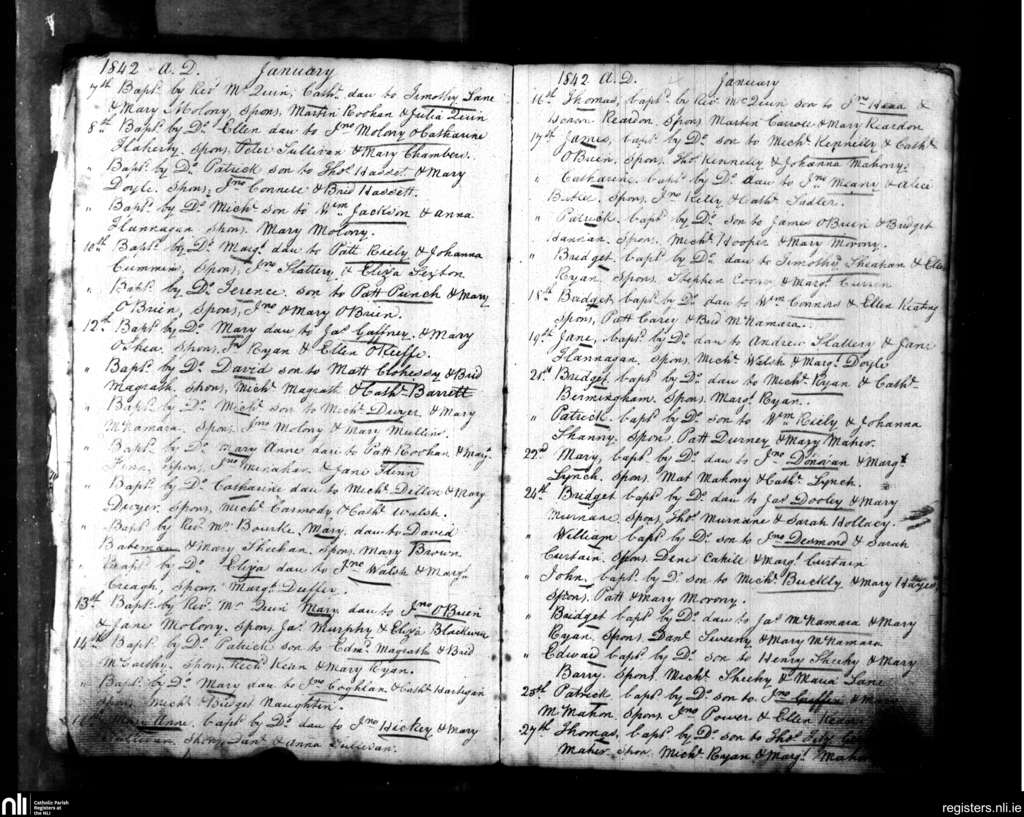 1842 A.D. January
7th Bapt. by Revd Mr Quin, Cathe. dau to Timothy Lane
& Mary Molony, Spons, Martin Roohan & Julia Quin
8th Bapt. by Do. Ellen dau to Jno Molony & Catharine
Flaherty, Spons, Peter Sullivan & Mary Chambers.
" Bapt. by Do. Patrick son to Thos. Hasset & Mary
Doyle. Spons, Jno Connell & Brid Hassett.
" Bapt. by Do. Michl. son to Wm Jackson & Anna
Flannagan Spons. Mary Molony.
10th Bapt. by Do. Margt. dau to Patt Riely & Johanna
Cummins, Spons, Jno Slattery & Eliza Sexton
" Bapt. by Do. Terence son to Patt Punch & Mary
O'Brien, Spons, Jno & Mary O'Brien.
12th Bapt. by Do. Mary dau to Jas Gaffney & Mary
O'Shea. Spons, Ryan & Ellen O'Keeffe.
" Bapt. by Do. David son to Matt Clohessy & Brid
Magrath. Spons, Michl. Magrath & Cathe. Barrett
" Bapt. by Do. Michl. son to Michl. Dwyer & Mary
McNamara. Spons, Jno Molony & Mary Mullins.
" Bapt. by Do. Mary Anne dau to Patt Roohan & Margt.
Spons, Jno Minahan & Jane Flinn
" Bapt. by Do. Catharine dau to Michl. Dillon & Mary
Dwyer. Spons, Michl. Carmody & Cathe. Walsh.
" Bapt. by Revd. Mr. Bourke, Mary, dau to David
Bateman & Mary Sheehan. Spons, Mary Brown
" Bapt. by Do. Eliza dau to Jno Walsh & Margt.
Creagh, Spons, Margt. Duffer.
13th Bapt. by Revd. Mr Quin Mary dau to Jno O'Brien
& Jane Molony. Spons, Jas. Murphy & Eliza
14th Bapt. by Do. Patrick son to Edmd. Magrath & Brid
McCarthy. Spons, Kean & Mary Ryan.
" Bapt. by Do. Mary dau to Jno Coghlan & Cathe. Hartigan
Spons, Michl. & Bridget Naughten.
Mary Anne, bapt. by Do. dau to Jno Hickey & Mary
Sullivan. Spons, Danl. & Anna Sullivan.
1842 A.D. January
16th Thomas, bapt. by Revd. Mr Quin son to Jno &
Honora Reardon. Spons, Martin Carroll & Mary Reardon
17th James, bapt. by Do. son to Michl. Kennelly & Cathe.
O'Brien, Spons, Thos. Kennelly & Johanna Mahony.
" Catharine, bapt. by Do. dau to Jno Meany & Alice
Spons, Jno Kelly & Cathe. Sadler.
" Patrick, bapt. by Do. son to James O'Brien & Bridget
Hannan. Spons, Michl. Hooper & Mary Morony.
" Bridget, bapt. by Do. dau to Timothy Sheahan & Ellen
Ryan. Spons, Stephen & Margt. Curren
18th Bridget bapt. by Do. dau to Wm Connors & Ellen Keating
Spons, Patt Carey & Brid McNamara.
19th Jane, bapt. by Do. dau to Andrew Slattery & Jane
Flannagan. Spons, Michl. Walsh & Margt. Doyle
21st Bridget bapt. by Do. dau to Michl. Ryan & Cathe.
Bermingham. Spons, Margt. Ryan.
" Patrick, bapt. by Do. son to Wm Riely & Johanna
Shanny, Spons, Patt Durney & Mary Maher.
22nd Mary, bapt. by Do. dau to Jno Donovan & Margt.
Lynch. Spons, Mat Mahony & Cathe. Lynch.
24th Bridget bapt. by Do. dau to Jas Dooley & Mary
Murnane Spons, Thos. Murnane & Sarah Hollacy.
" William bapt. by Do. son to Jno Desmond & Sarah
Curtain. Spons, Denis Cahill & Margt. Curtain
" John, bapt. by Do. son to Michl. Buckley, & Mary Hayes
Spons, Patt & Mary Morony.
" Bridget bapt. by Do. dau to Jas McNamara & Mary
Ryan. Spons, Danl. Sweeny & Mary McNamara
" Edward bapt. by Do. son to Henry Sheehy & Mary
Barry. Spons, Michl. Sheehy & Maria Lane
25th Patrick bapt. by Do. son to Jno & Mary
McMahon. Spons, Jno Power & Ellen
27th Thomas, bapt. by Do. son to Thos.
Maher Spons, Michl. Ryan & Margt. Maher
nli
Catholic Parish
Registers at
the NLI
registers.nli.ie